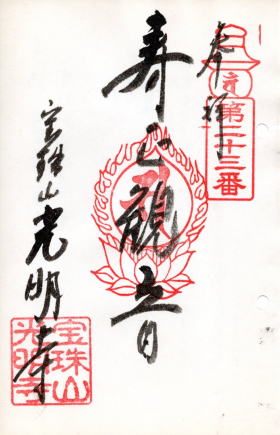 奉拝
第二十三番
寿
正観世音
宝珠山光明寺
宝珠山
光明寺